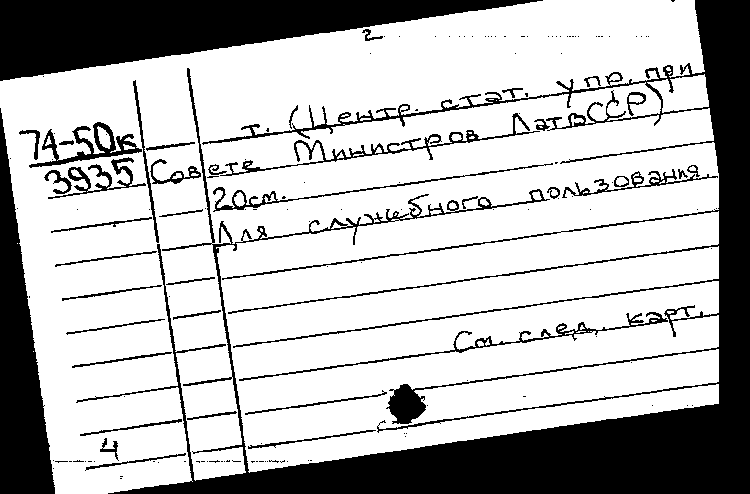 2
т. (Центр. стат. упр. при
74-50к
3935 Совете Министров ЛатвССР)
20см.
Для служебного пользования.
См. след. карт.
4